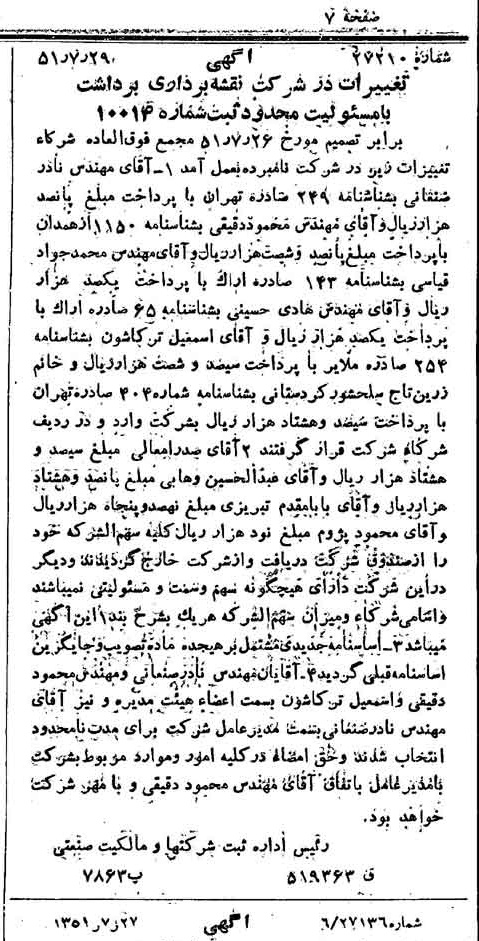 صفحهٔ ۷
شماره ۲۷۲۱۰ آگهی ۵۱/۷/۲۹
تغییرات در شرکت نقشه برداری برداشت
با مسئولیت محدود ثبت شماره ۱۰۰۱۴
برابر تصمیم مورخ ۵۱/۷/۲۶ مجمع فوق‌العاده شرکاء
تغییرات زیر در شرکت نامبرده بعمل آمد ۱- آقای مهندس نادر
صنعانی بشناسنامه ۲۴۹ صادره تهران با پرداخت مبلغ پانصد
هزار ریال و آقای مهندس محمود دقیقی بشناسنامه ۱۱۵۰ از همدان
با پرداخت مبلغ پانصد و شصت هزار ریال و آقای مهندس محمد جواد
قیاسی بشناسنامه ۱۴۳ صادره اراک با پرداخت یکصد هزار
ریال و آقای مهندس هادی حسینی بشناسنامه ۶۵ صادره اراک با
پرداخت یکصد هزار ریال و آقای اسمعیل ترکاشون بشناسنامه
۲۵۴ صادره ملایر با پرداخت سیصد و شصت هزار ریال و خانم
زرین تاج سلحشور کردستانی بشناسنامه شماره ۴۰۴ صادره تهران
با پرداخت سیصد و هشتاد هزار ریال بشرکت وارد و در ردیف
شرکاء شرکت قرار گرفتند ۲ آقای صدرامعالی مبلغ سیصد و
هشتاد هزار ریال و آقای عبدالحسین وهابی مبلغ پانصد و هشتاد
هزار ریال و آقای بابا مقدم تبریزی مبلغ نهصد و پنجاه هزار ریال
و آقای محمود پژوم مبلغ نود هزار ریال کلیه سهم‌الشرکه خود
را از صندوق شرکت دریافت و از شرکت خارج گردیدند و دیگر
در این شرکت دارای هیچگونه سهم و سمت و مسئولیتی نمیباشند
و اسامی شرکاء و میزان سهم الشرکه هر یک بشرح بند ۱ این آگهی
میباشد ۳- اساسنامه جدیدی مشتمل بر هیجده ماده تصویب و جایگزین
اساسنامه قبلی گردید ۴- آقایان مهندس نادر صنعانی و مهندس محمود
دقیقی و اسمعیل ترکاشون بسمت اعضاء هیئت مدیره و نیز آقای
مهندس نادر صنعانی بسمت مدیر عامل شرکت برای مدت نامحدود
انتخاب شدند و حق امضاء در کلیه امور و موارد مربوط بشرکت
با مدیر عامل باتفاق آقای مهندس محمود دقیقی و با مهر شرکت
خواهد بود.
رئیس اداره ثبت شرکتها و مالکیت صنعتی
ق ۵۱۹۳۶۳ پ ۷۸۶۳
شماره ۶/۲۷۱۳۶ آگهی ۱۳۵۱ر۷ر۲۷